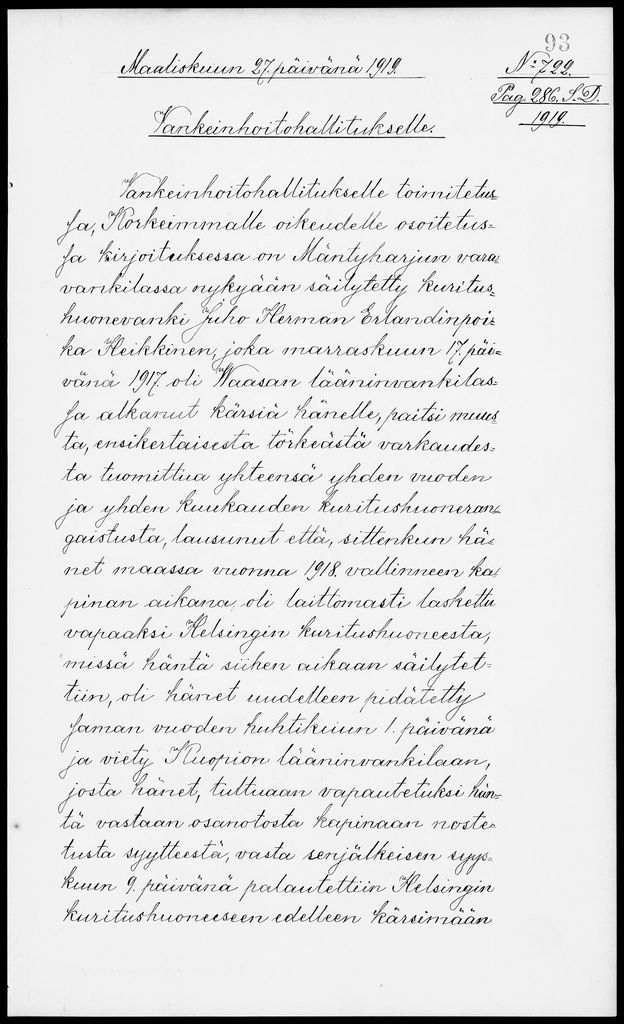 93
Maaliskuun 27. päivänä 1919.
No: 722.
Pag. 286. S.D.
1919.
Vankeinhoitohallitukselle.
Vankeinhoitohallitukselle toimitetus=
sa, Korkeimmalle oikeudelle osoitetus=
sa kirjoituksessa on Mäntyharjun vara=
vankilassa nykyään säilytetty kuritus=
huonevanki Juho Herman Erlandinpoi=
ka Heikkinen, joka marraskuun 17. päi=
vänä 1917 oli Waasan lääninvankilas=
sa alkanut kärsiä hänelle, paitsi muus=
ta, ensikertaisesta törkeästä varkaudes=
ta tuomittua yhteensä yhden vuoden
ja yhden kuukauden kuritushuoneran=
gaistusta, lausunut että, sittenkun hä=
net maassa vuonna 1918 vallinneen ka=
pinan aikana oli laittomasti laskettu
vapaaksi Helsingin kuritushuoneesta,
missä häntä siihen aikaan säilytet=
tiin, oli hänet uudelleen pidätetty
saman vuoden huhtikuun 1. päivänä
ja viety Kuopion lääninvankilaan,
josta hänet, tultuaan vapautetuksi hän=
tä vastaan osanotosta kapinaan noste=
tusta syytteestä, vasta senjälkeisen syys=
kuun 9. päivänä palautettiin Helsingin
kuritushuoneeseen edelleen kärsimään